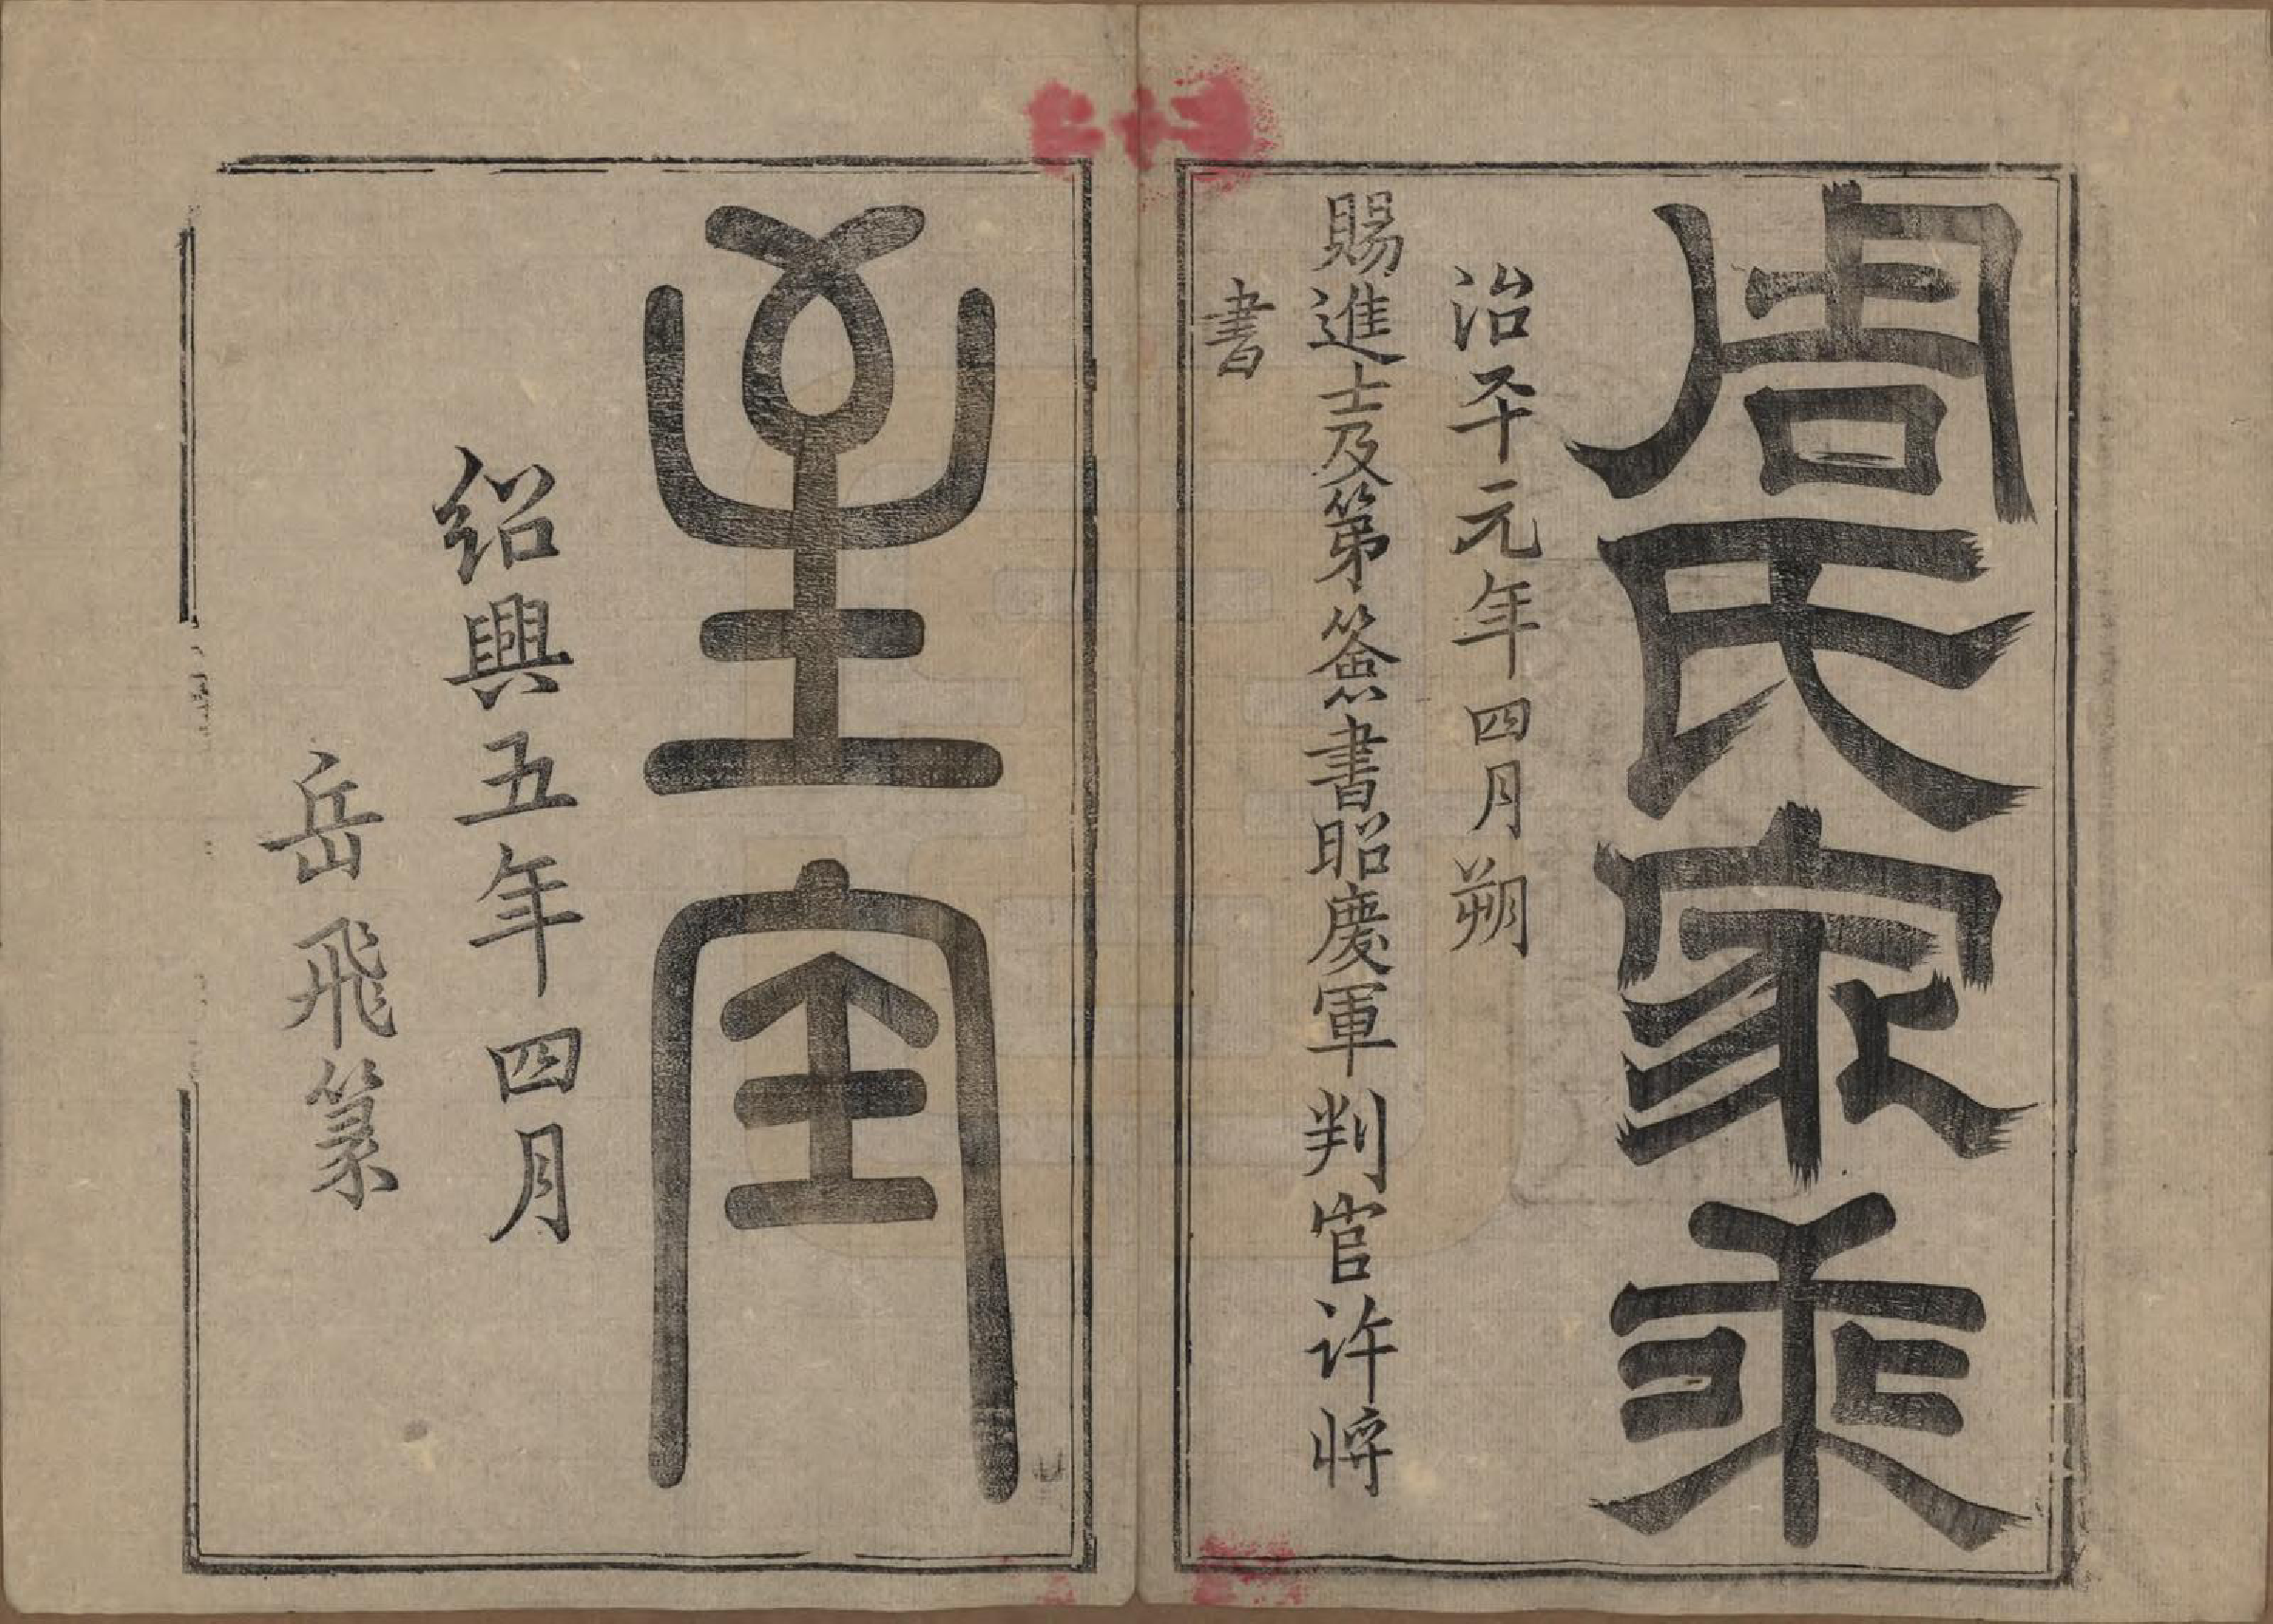 周氏家乘
治平元年四月朔
賜進士及第簽書昭慶軍判官許將
書
至宝
紹興五年四月
岳飛篆